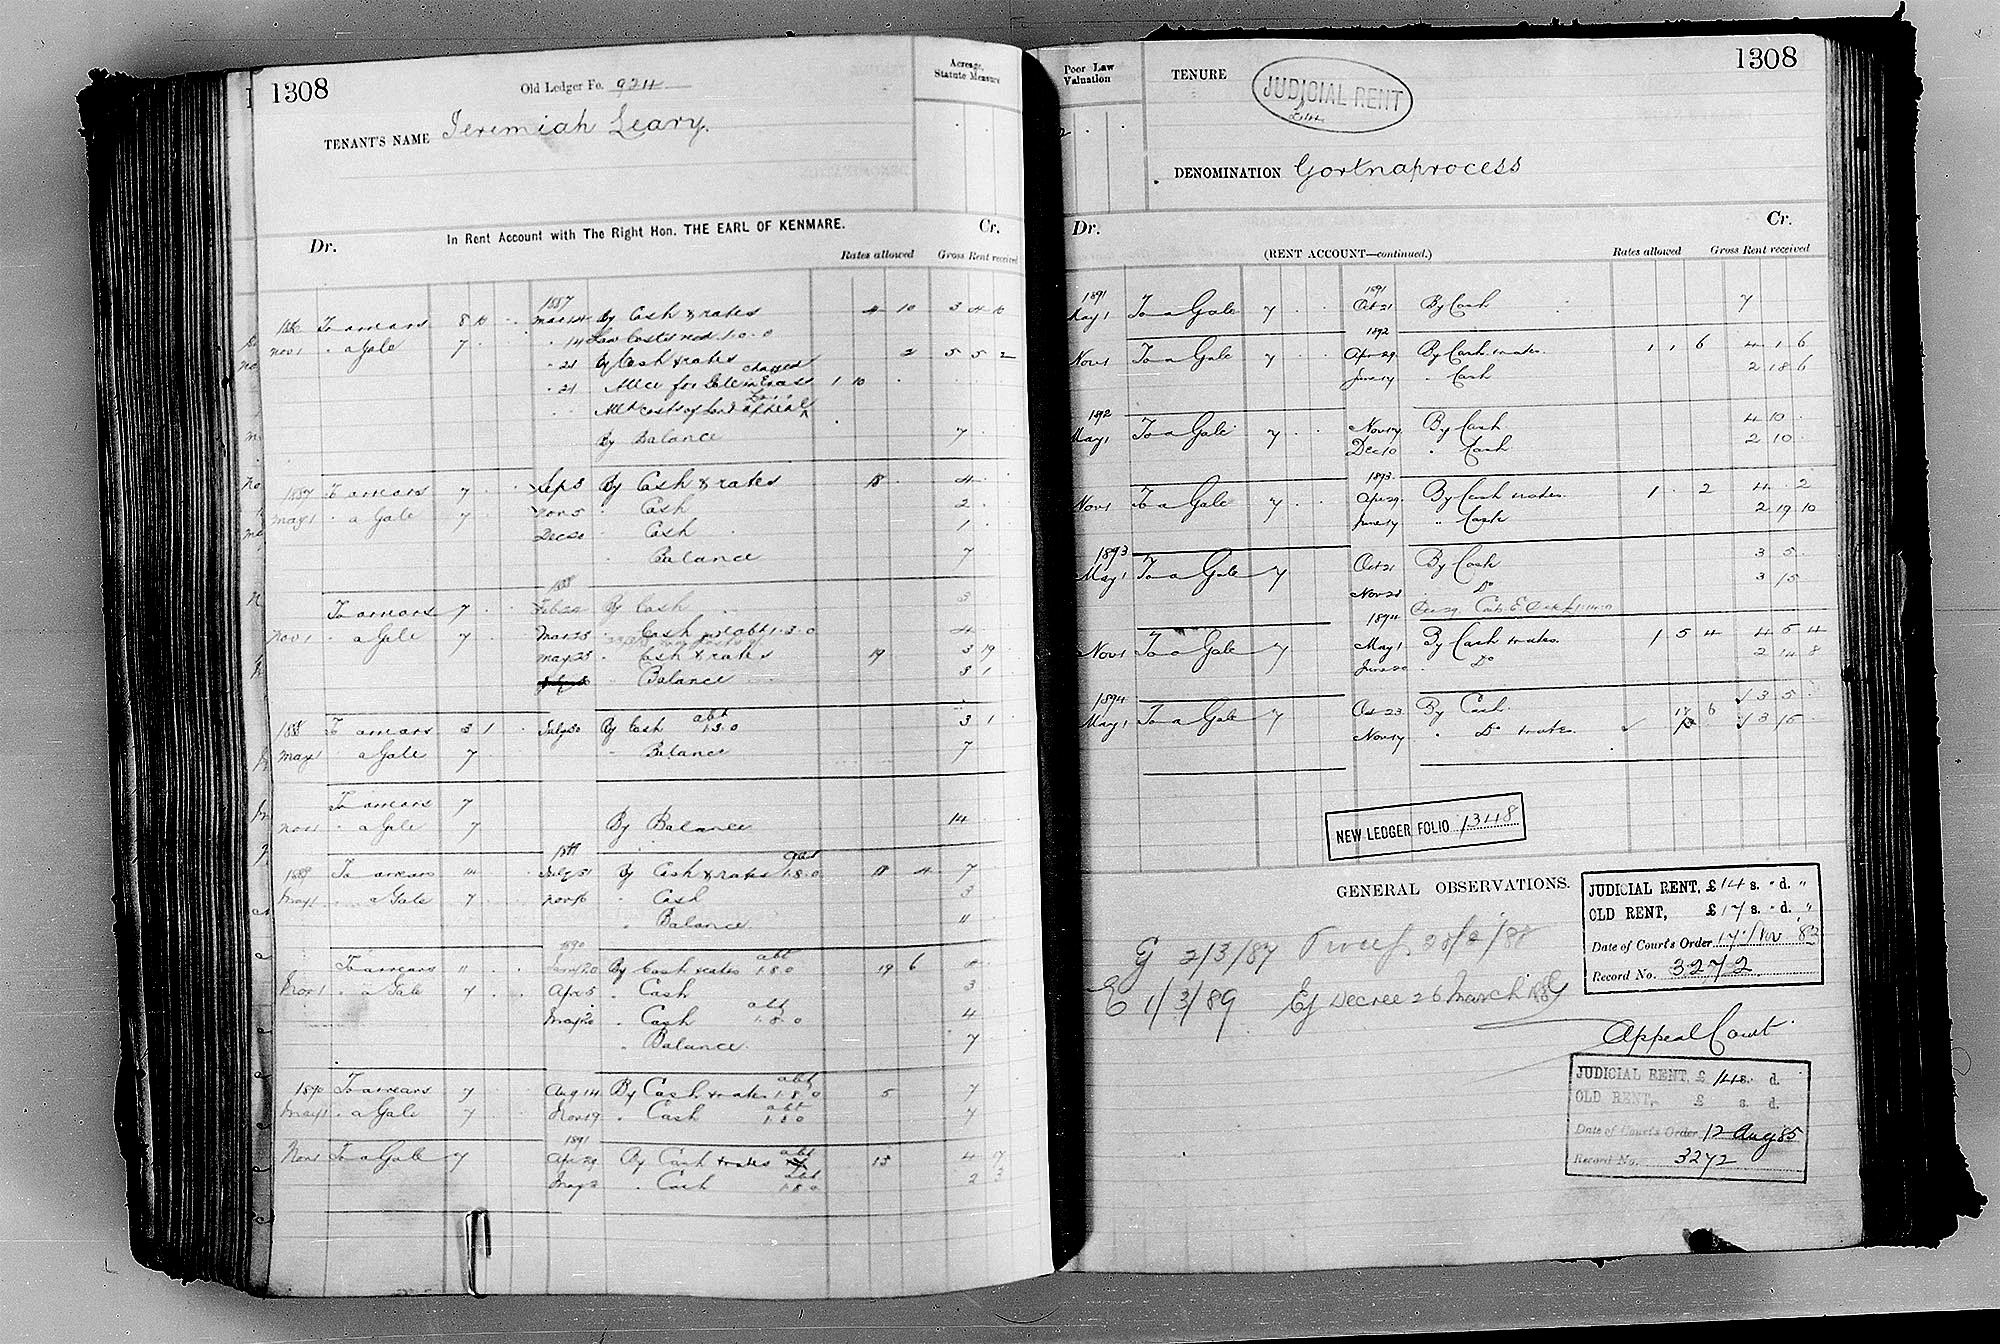 1308
Old Ledger Fo. 924
Acreage, Statute Measure
TENANT'S NAME Jeremiah Leary.
In Rent Account with The Right Hon. THE EARL OF KENMARE.
Dr. Cr.
Rates allowed Gross Rent received
1886 To arrears 8 10 1887 Mar 14 By Cash & rates 4 10 3 4 10
Nov 1 " a Gale 7 " 14 Law Costs 1. 0. 0
" 21 By Cash & rates 2 5 5 2
" 21 charged 1 10
By Balance 7
1887 To arrears 7 Sep 3 By Cash & rates 18 4
May 1 " a Gale 7 Nov 5 " Cash 2
Dec 20 " Cash 1
" Balance 7
1888
To arrears 7 Feb 22 By Cash 3
Nov 1 " a Gale 7 Mar 23 " Cash abt 1. 3. 0 4
May 23 " Cash & rates 19 3 19
" Balance 3 1
1888 To arrears 3 1 July 30 By Cash abt 1.3.0 3 1
May 1 a Gale 7 " Balance 7
To arrears 7
Nov 1 " a Gale 7 By Balance 14
1889
1889 To arrears 14 July 31 By Cash & rates 1.8.0 18 4 7
May 1 " a Gale 7 Nov 16 " Cash 3
" Balance 11
1890
To arrears 11 Jany 20 By Cash & rates abt 1.8.0 19 6 4
Nov 1 " a Gale 7 Apr 5 " Cash 3
May 20 " Cash abt 1.8.0 4
" Balance 7
1890 To arrears 7 Aug 14 By Cash & rates abt 1.8.0 5 7
May 1 " a Gale 7 Nov 19 " Cash abt 1.8.0 7
1891
Nov 1 To a Gale 7 Apr 29 By Cash & rates abt 15 4 17
May 2 " Cash abt 1.8.0 2 3
1308
Poor Law Valuation
TENURE JUDICIAL RENT
DENOMINATION Gortnaprocess
Dr. Cr.
(RENT ACCOUNT—continued.)
Rates allowed Gross Rent received
1891 1891
May 1 To a Gale 7 Oct 21 By Cash 7
1892
Nov 1 To a Gale 7 Apr 29 By Cash & rates. 1 1 6 4 1 6
June 17 " Cash 2 18 6
1892
May 1 To a Gale 7 Nov 17 By Cash 4 10
Dec 10 " Cash 2 10
1893
Nov 1 To a Gale 7 Apr 29 By Cash & rates. 1 . 2 4 . 2
June 17 " Cash 2 19 10
1893
May 1 To a Gale 7 Oct 21 By Cash 3 5
Nov 28 " Do 3 15
Dec 29
1894
Nov 1 To a Gale 7 May 1 By Cash & rates. 1 5 4 4 5 4
June 20 " Do 2 14 8
1894
May 1 To a Gale 7 Oct 23 By Cash 17 6 3 5
Nov 17 " Do & rates. 3 15
NEW LEDGER FOLIO 1348
GENERAL OBSERVATIONS.
JUDICIAL RENT, £ 14 s. " d. "
OLD RENT, £ 17 s. " d. "
Date of Court's Order 17 Nov 82
Record No. 3272
G 2/3/87
E 1/3/89 Ej Decree 26 March 1889
Appeal Court
JUDICIAL RENT, £ 14 s. d.
OLD RENT, £ s. d.
Date of Court's Order 12 Aug 85
Record No. 3272